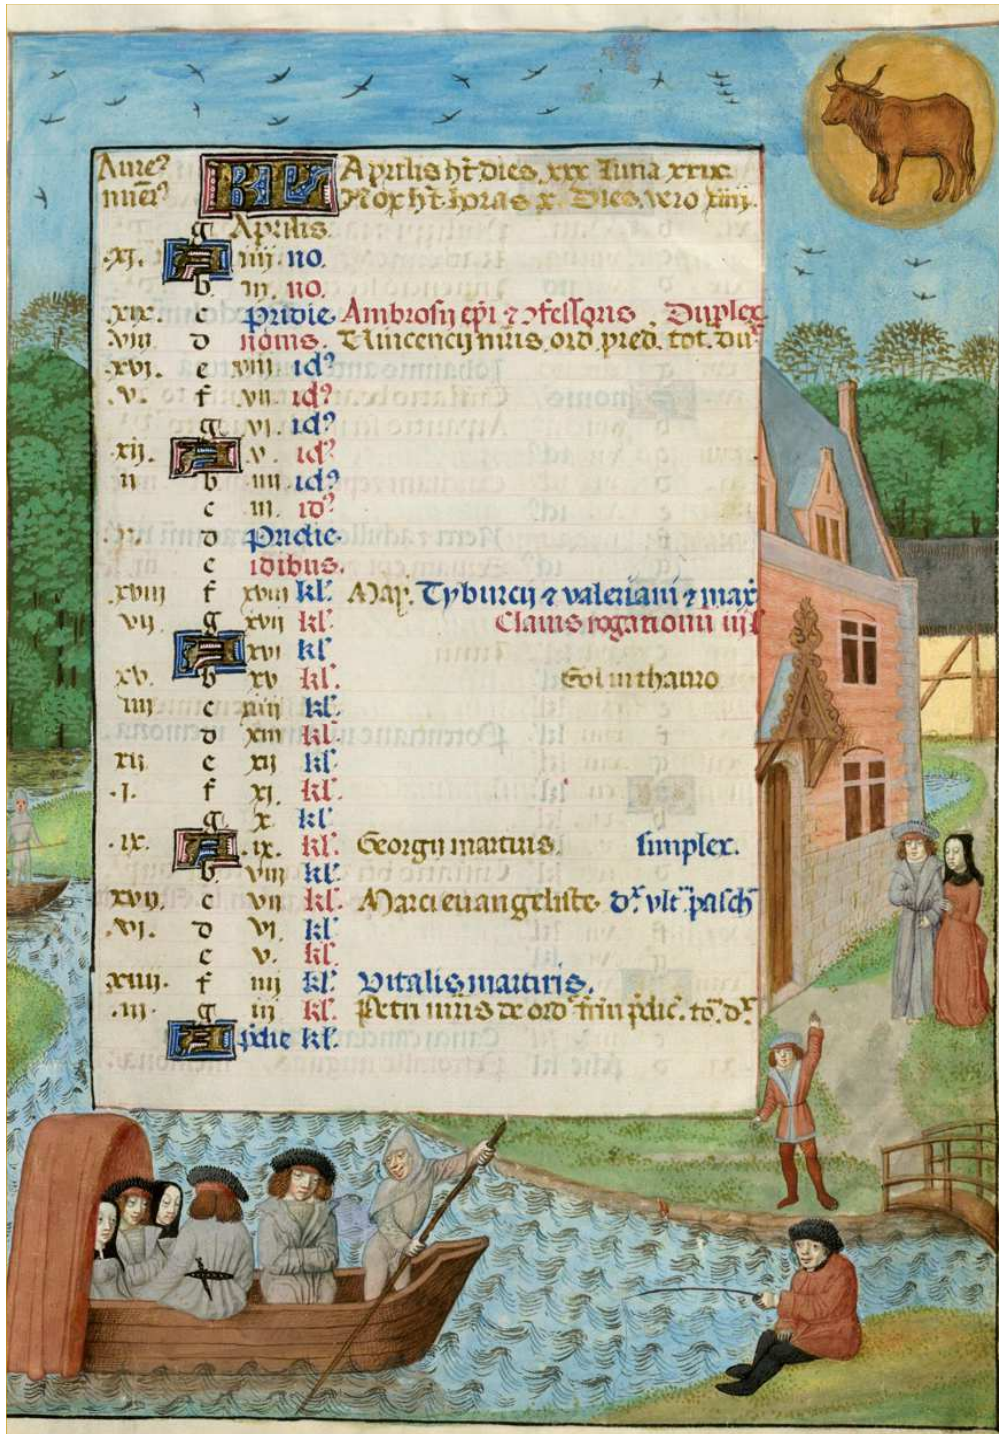 Aure⁹ KL Aprilis ht dies xxx luna xxix
nuer⁹ Nox ht horas x. Dies vero xiiij.
g Aprilis.
.xj. A iiij no.
b. iij. no.
xix. c pridie Ambrosij epi ⁊ ꝯfessoris Duplex
viij d nonis. Vincencij mris. ord. pred. tot. du
xvj. e viij id⁹
.v. f vij. id⁹
g. vj. id⁹
.xij. A .v. id⁹
ij b iiij id⁹
c iij. id⁹
.x. d pridie
e idibus.
xviij f xviij kl. Maij. Tyburcij ⁊ valeriani ⁊ max
vij. g xvij kl. Clauis rogationum
A xvi kl
xv. b xv kl. Sol in thauro
iiij c xiiij kl.
d xiij kl.
xij c xij kl.
.j. f xj. kl.
g. x. kl.
.ix. A .ix. kl. Georgij martiris. simplex.
b. viij kl.
xvij. c vij kl. Marci euangeliste. d⁹. vlt. pasch
.vj. d vj. kl.
e v. kl.
xiiij. f iiij kl. Vitalis martiris.
.iij. g iij kl. Petri mris de ord frm pdic. to. d⁹
A pdie kl.